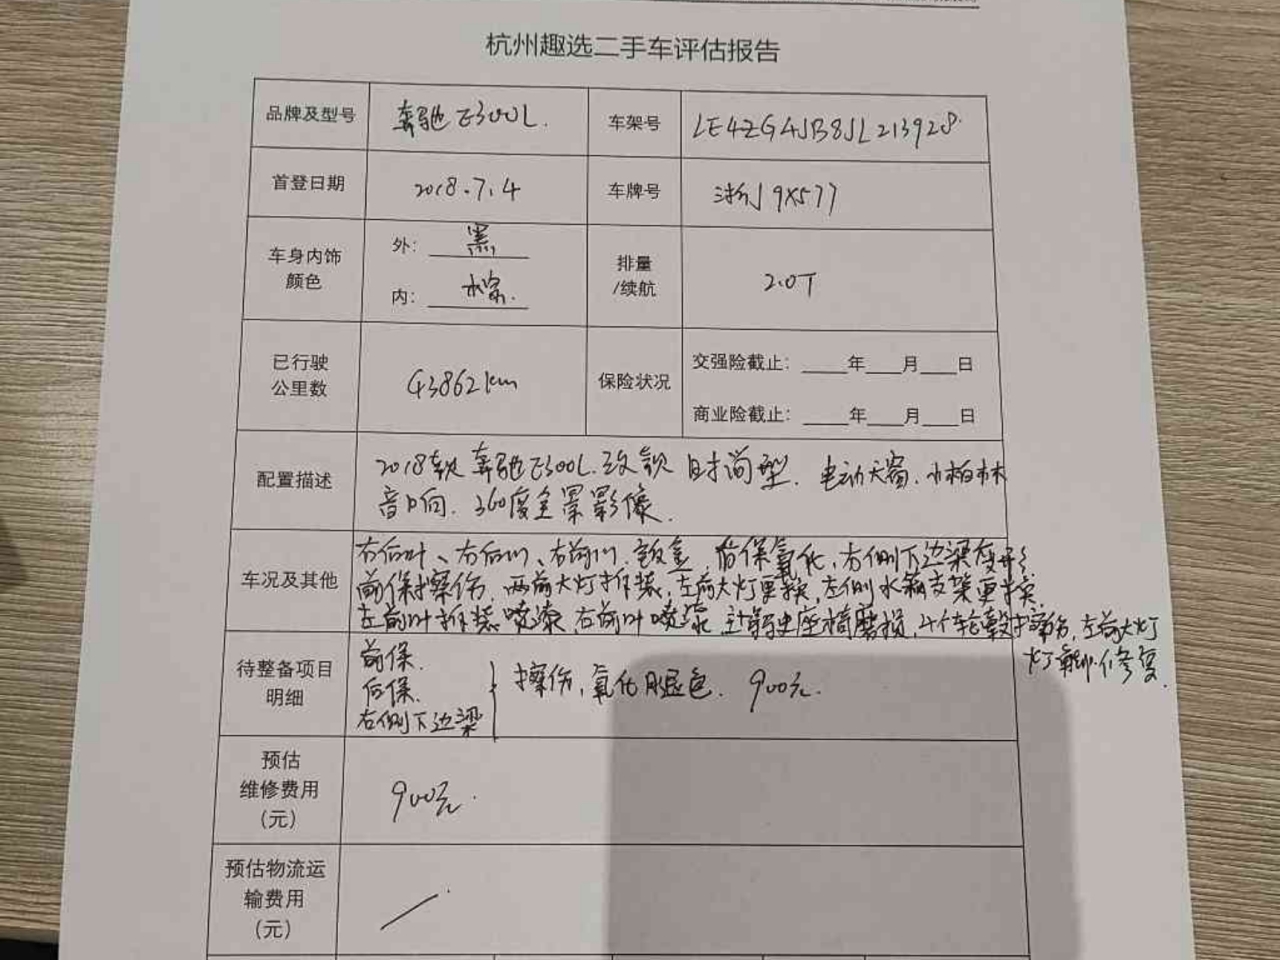 杭州趣选二手车评估报告
品牌及型号 奔驰E300L. 车架号 LE4ZG4JB8JL213928.
首登日期 2018.7.4 车牌号 浙J9X577
车身内饰颜色 外: 黑 内: 排量/续航 2.0T
已行驶公里数 43862km 保险状况 交强险截止: ____年____月____日
商业险截止: ____年____月____日
配置描述 2018款 奔驰E300L.改款 时尚型. 电动天窗.小柏林
音响. 360度全景影像.
车况及其他 右后叶、右后门、右前门 钣金 后保氧化,右侧下边梁变形
前保擦伤, 两前大灯拆装,左前大灯更换,左侧水箱支架更换
左前叶拆装喷漆 右前叶喷漆 主驾驶座椅磨损, 4个轮毂擦伤, 左前大灯
灯 修复.
待整备项目明细 前保.
后保. 擦伤,氧化 色. 900元.
右侧下边梁
预估维修费用(元) 900元.
预估物流运输费用(元) /